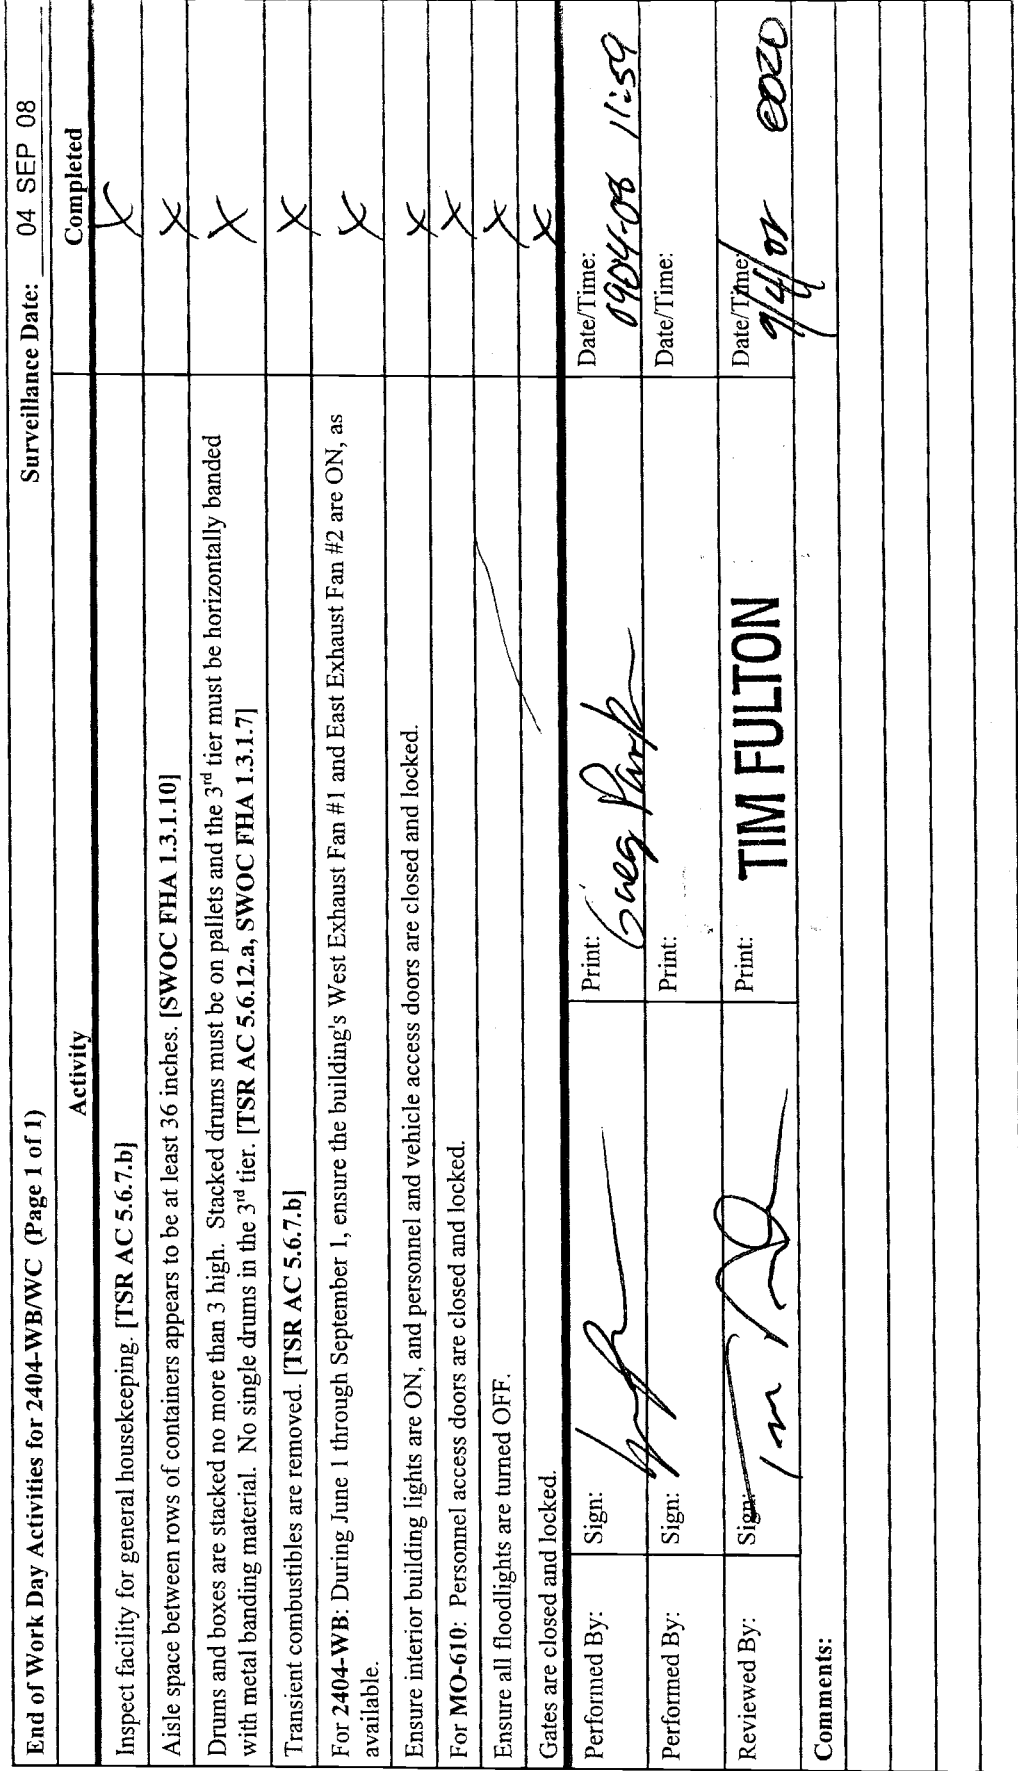 End of Work Day Activities for 2404-WB/WC (Page 1 of 1) Surveillance Date: 04 SEP 08
Activity Completed
Inspect facility for general housekeeping. [TSR AC 5.6.7.b] X
Aisle space between rows of containers appears to be at least 36 inches. [SWOC FHA 1.3.1.10] X
Drums and boxes are stacked no more than 3 high. Stacked drums must be on pallets and the 3rd tier must be horizontally banded X
with metal banding material. No single drums in the 3rd tier. [TSR AC 5.6.12.a, SWOC FHA 1.3.1.7]
Transient combustibles are removed. [TSR AC 5.6.7.b] X
For 2404-WB: During June 1 through September 1, ensure the building's West Exhaust Fan #1 and East Exhaust Fan #2 are ON, as X
available.
Ensure interior building lights are ON, and personnel and vehicle access doors are closed and locked. X
For MO-610: Personnel access doors are closed and locked. X
Ensure all floodlights are turned OFF. X
Gates are closed and locked. X
Performed By: Sign: Print: Greg Park Date/Time: 11:59
Performed By: Sign: Print: Date/Time:
Reviewed By: Sign: Print: TIM FULTON Date/Time: 9/4/08
Comments: